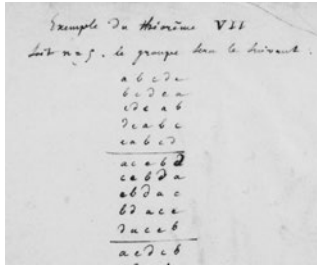 Exemple du théorème VII
Soit n=5. le groupe sera le suivant:
a b c d e
b c d e a
c d e a b
d e a b c
e a b c d
a c e b d
c e b d a
e b d a c
b d a c e
d a c e b
a e d c b